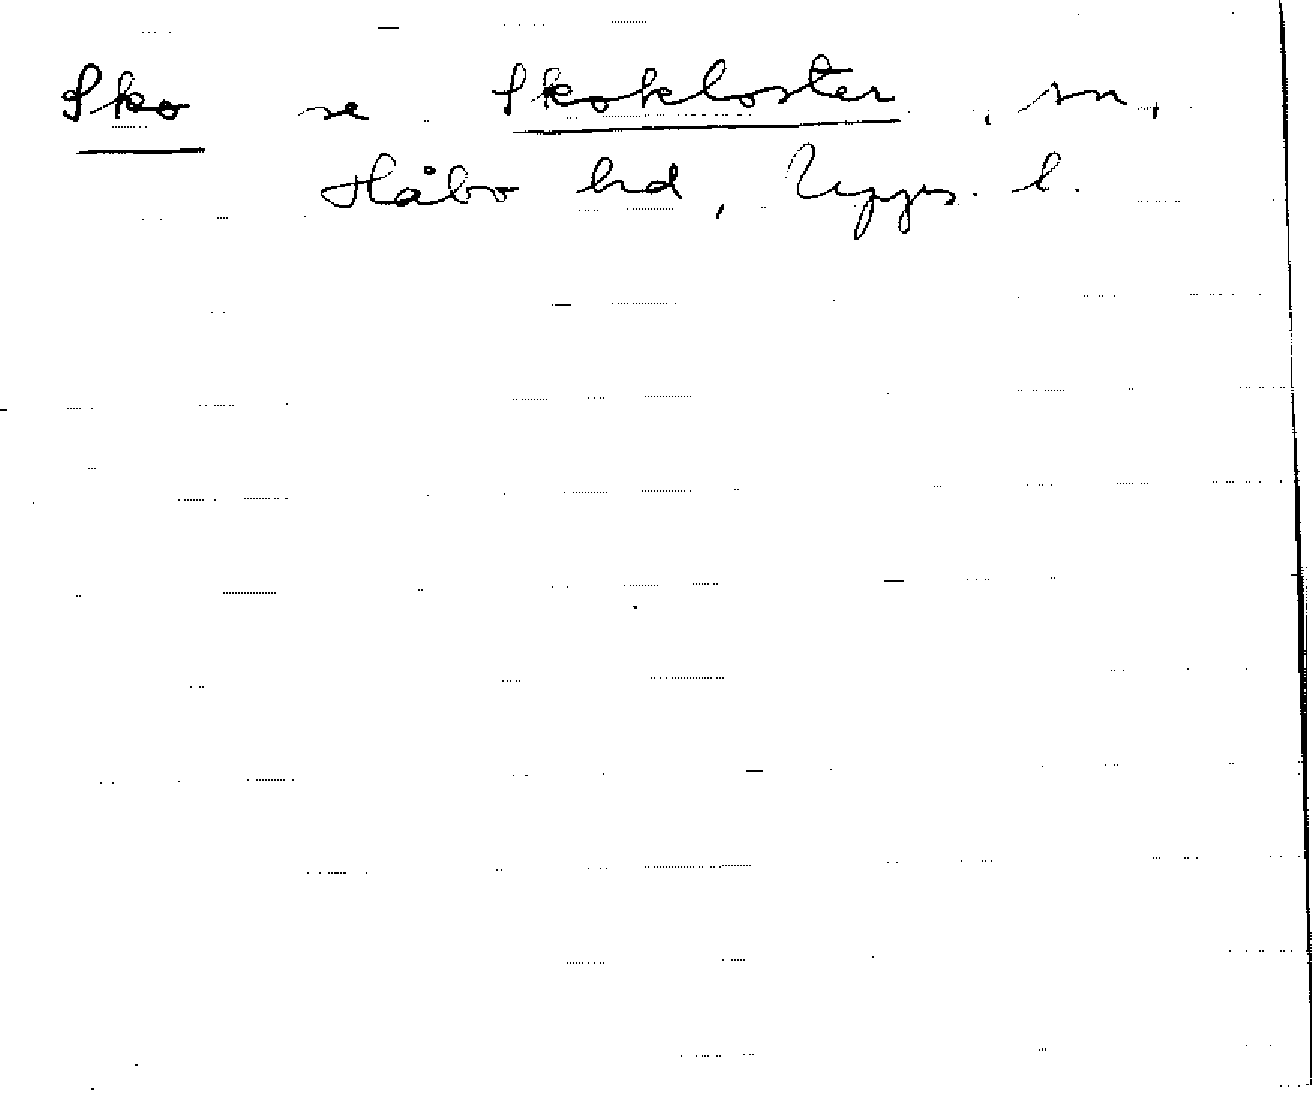 Sko se Skokloster, sn,
Håbo hd, Upps. l.